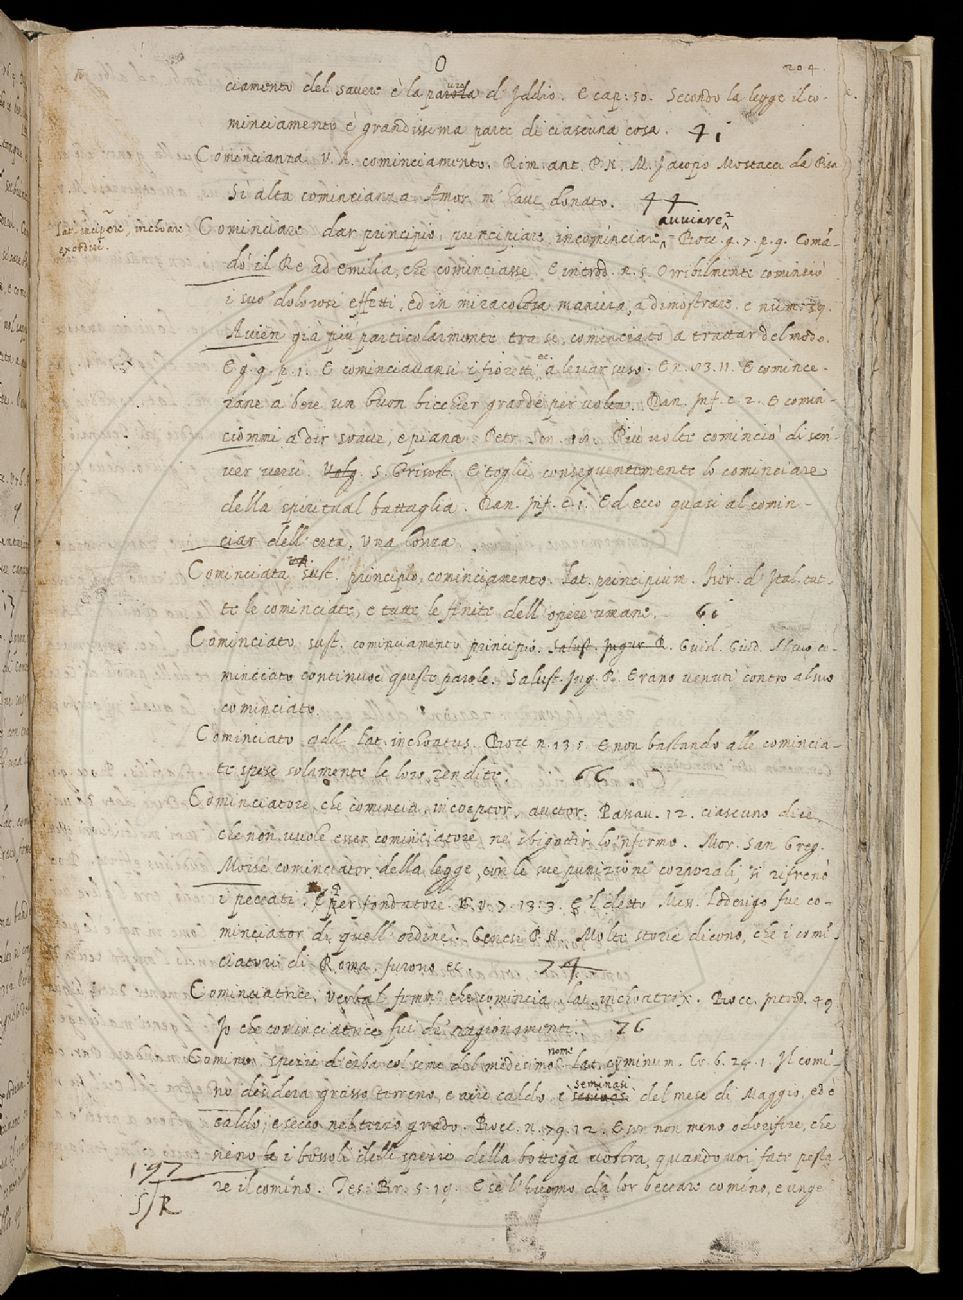 O
204
ciamento del savere è la paura d'Iddio. E cap: 50. Secondo la legge il co-
minciamento è grandissima parte di ciascuna cosa. 41
Comincianza V. A. cominciamento. Rim. ant. P. N. M. Jacopo Mostacci da Pisa
Si alta comincianza Amor m'have donato. 44
avviare
Lat. incipere, inchoare
exordiri
Cominciare dar principio, principiare, incominciare Bocc. g. 7. p. 9. Coman-
dò il Re ad emilia, che cominciasse. E introd. n. 5. orribilmente cominciò
i suoi dolorosi effetti, ed in miracolosa maniera, a dimostrare. e num. 39.
Avien già più particolarmente tra se cominciato a trattar del modo.
E g. 9. p. 1. E cominciavansi i fioretti a levar suso. E n. 73. 11. E comince-
rane a bere un buon bicchier grande per volta. Dan. Inf. c. 2. E comin-
ciommi a dir soave, e piana Petr. Son. 19. Più volte cominciò di scri-
ver versi. S. Grisost. E toglie conseguentemente lo cominciare
della spiritual battaglia. Dan. Inf. c. 1. Ed ecco quasi al comin-
ciar dell'erta, una lonza.
Cominciata sust. principio, cominciamento. Lat. principium. Fior. d'Ital. tut-
te le cominciate, e tutte le finite dell'opere umane. 61
Cominciato sust. cominciamento principio. Salust. Jugur. R. Guid. Giud. Il suo co-
minciato continuoe queste parole. Salust. Jug. R. Erano venuti contro al suo
cominciato.
Cominciato add. Lat. inchoatus. Bocc. n. 13 5. E non bastando alle comincia-
te spese solamente le loro rendite. 66
Cominciatore, che comincia, incoeptor, auctor. Passav. 12. ciascuno dice,
che non vuole esser cominciatore, ne sbigottir lo 'nfermo. Mor. San Greg.
Moisè cominciator della legge, con le sue punizioni corporali, si rifrenò
i peccati. E per fondatore. G. V. 7. 13. 3. E 'l detto Mess. Loderigo fue co-
minciator di quell'ordine. Genesi P. N. Molte storie dicono, che i comin-
ciatori di Roma furono ec. 74
Cominciatrice, verbal femm. che comincia, lat. inchoatrix. Bocc. introd. 49
Io che cominciatrice fui de' ragionamenti. 76
nome
Comino. spezie d'erba col seme del medesimo Lat. cyminum. Cr. 6. 24. 1. Il comi-
no desidera grasso terreno, e aere caldo. e seminasi del mese di Maggio, ed è
caldo, e secco nel terzo grado. Bocc. n. 79. 12. E son non meno odorifere, che
sieno le i bossoli delle spezie della bottega vostra, quando voi fate pesta-
re il comino. Tes. Br. 5. 19. E se l'huomo dà lor beccare comino, e unge
197
S/R